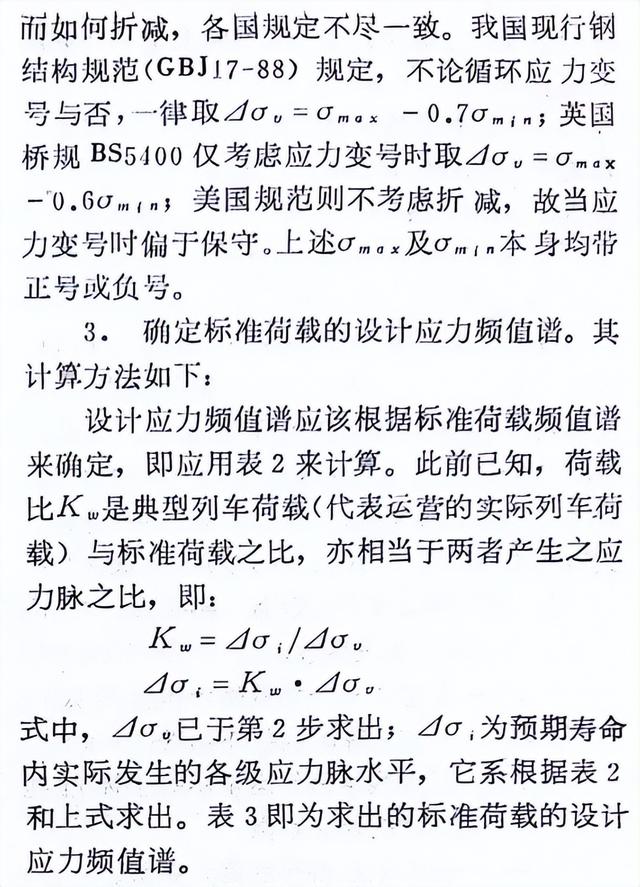 而如何折减，各国规定不尽一致。我国现行钢
结构规范(GBJ17-88) 规定，不论循环应力变
号与否，一律取Δσᵥ=σmax －0.7σmin；英国
桥规 BS5400 仅考虑应力变号时取Δσᵥ=σmax
－0.6σmin；美国规范则不考虑折减，故当应
力变号时偏于保守。上述σmax及σmin本身均带
正号或负号。
3． 确定标准荷载的设计应力频值谱。其
计算方法如下：
设计应力频值谱应该根据标准荷载频值谱
来确定，即应用表2来计算。此前已知，荷载
比Kw是典型列车荷载(代表运营的实际列车荷
载）与标准荷载之比，亦相当于两者产生之应
力脉之比，即：
Kw=Δσi/Δσᵥ
Δσi=Kw·Δσᵥ
式中，Δσᵥ已于第2步求出；Δσi为预期寿命
内实际发生的各级应力脉水平，它系根据表2
和上式求出。表3即为求出的标准荷载的设计
应力频值谱。